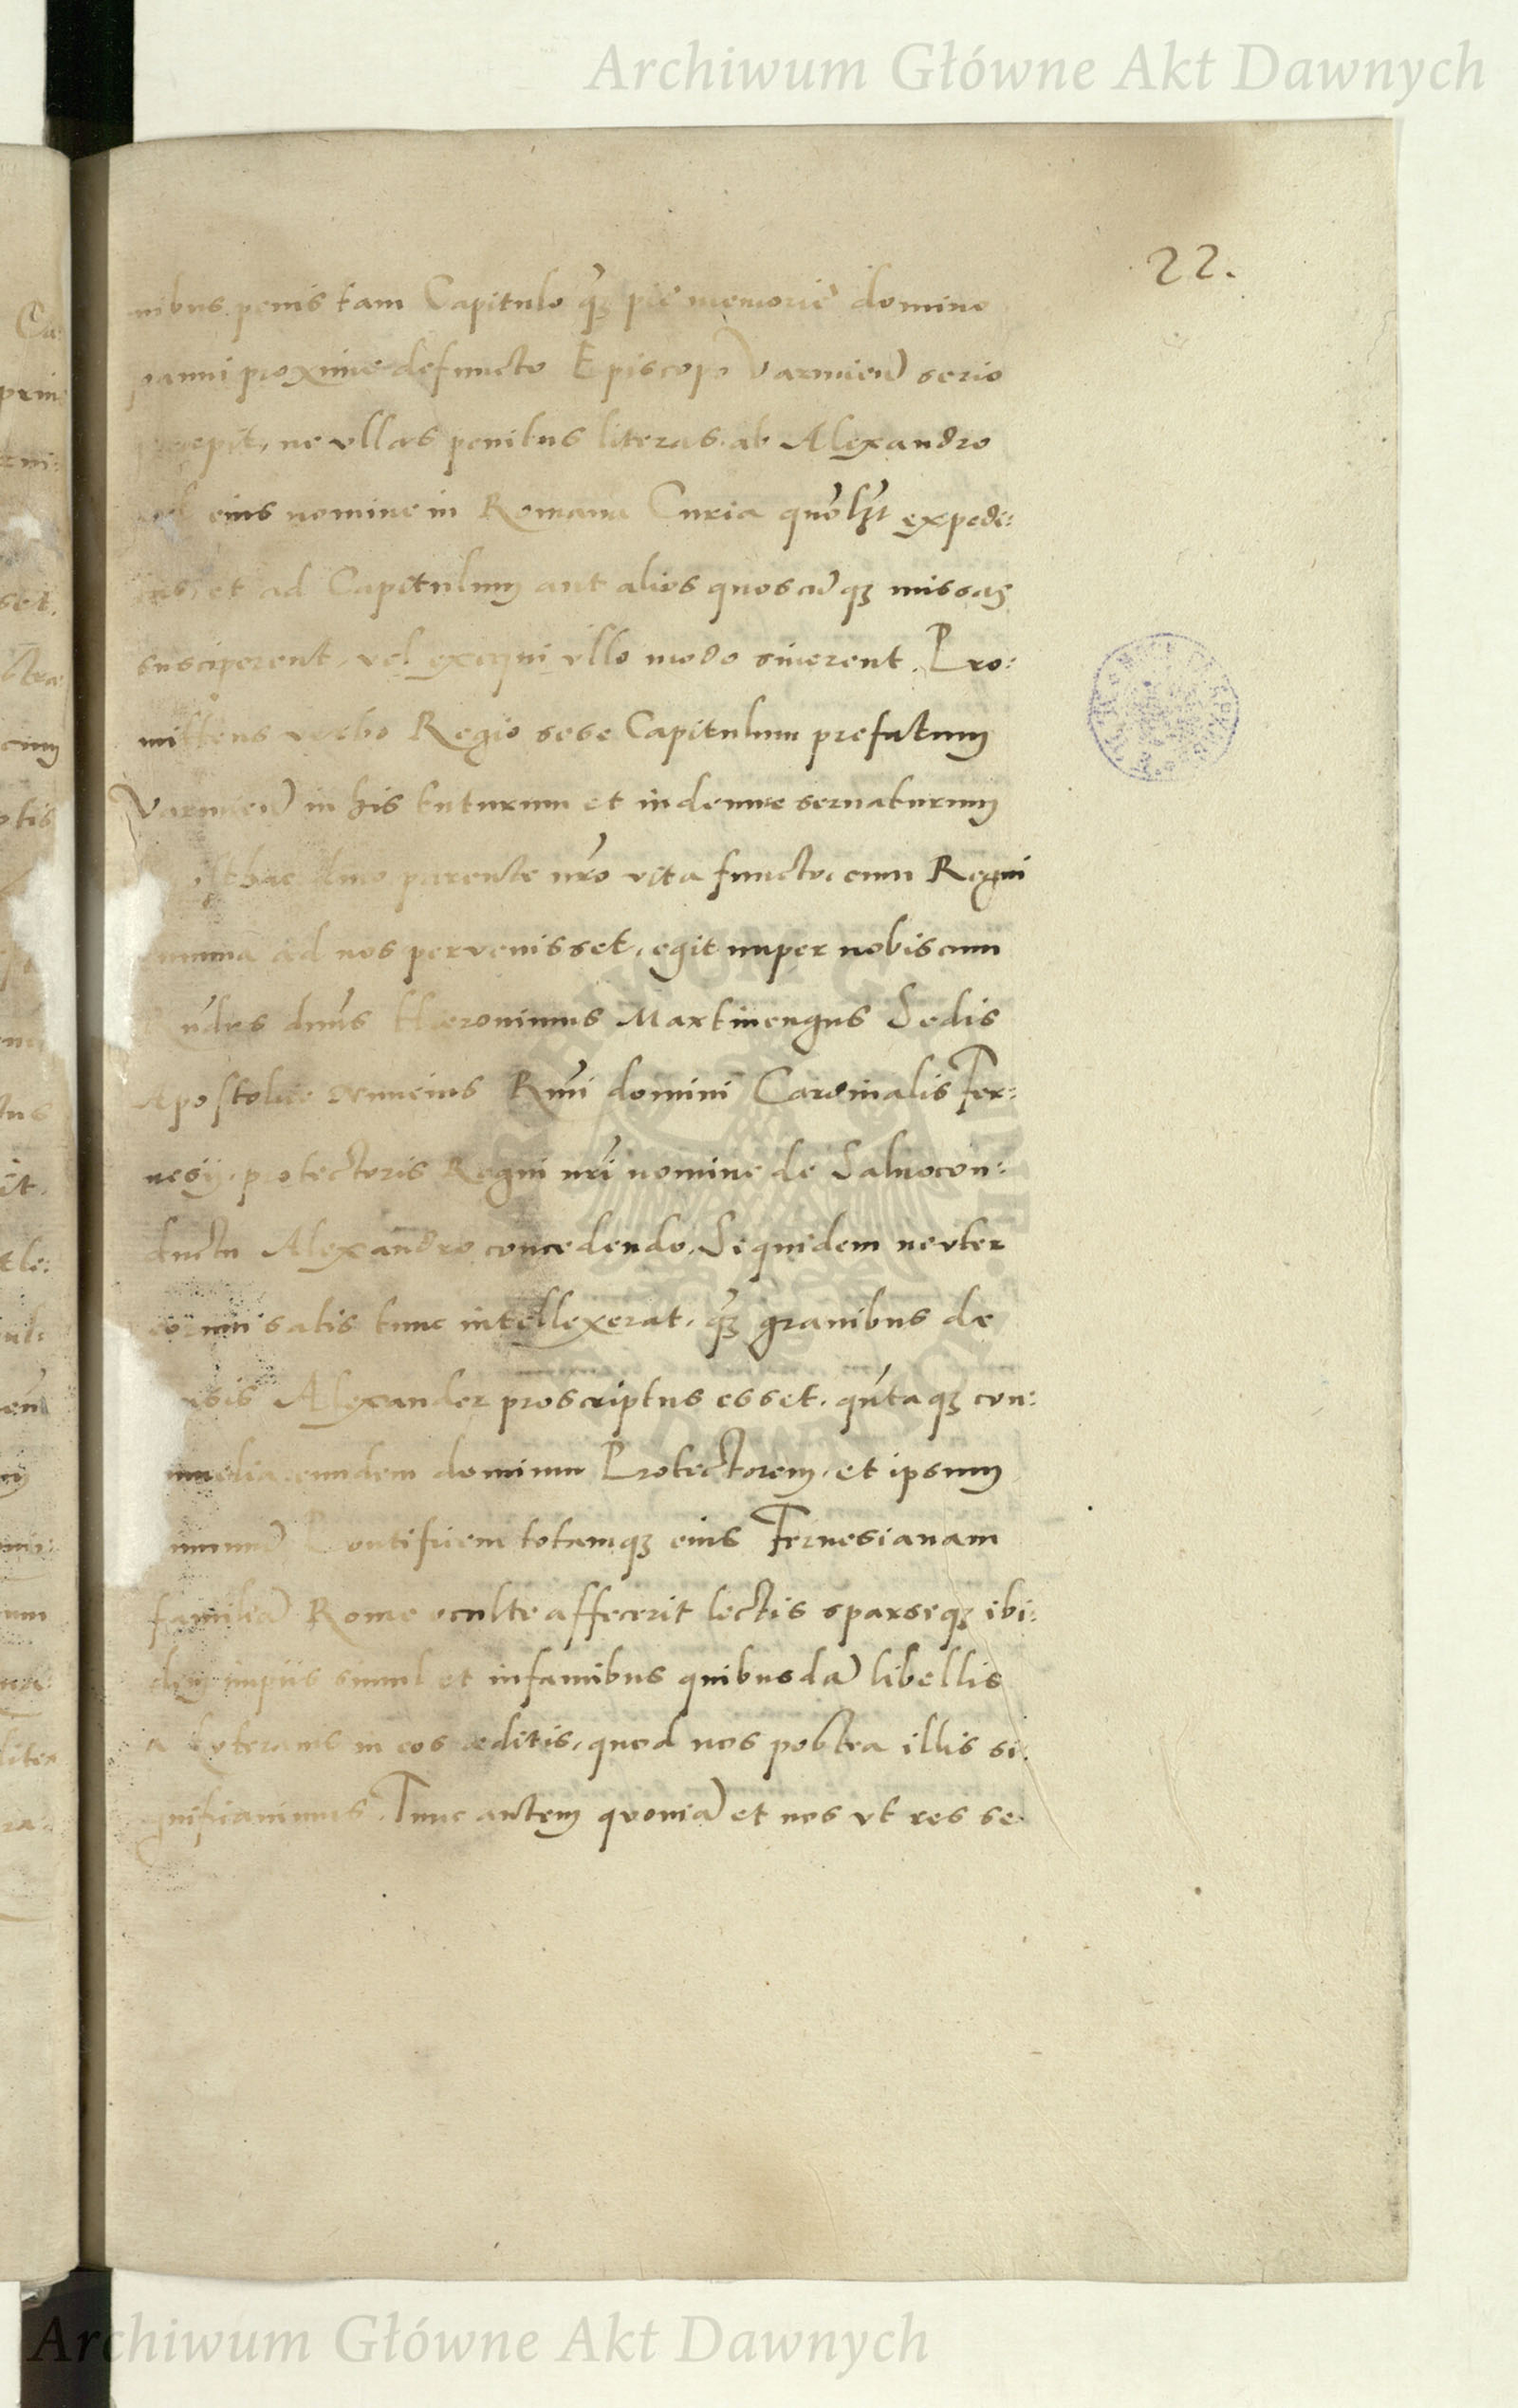 Archiwum Główne Akt Dawnych
22.
nibus penis tam Capitulo q̃ꝫ pie memorie domino
proxime defuncto Episcopo Varmien̄ serio
ne vllas penitus literas ab Alexandro
eius nomine in Romana Curia quõlꝫt expedi:
et ad Capitulum aut alios quoscūqꝫ missas
susciperent, vel exequi vllo modo sinerent. Pro:
mittens verbo Regio sese Capitulum prefatum
Varmien̄ in his tuturum et indemne seruaturum
parente nr̃o vita functo, cum Regni
ad nos pervenisset, egit nuper nobiscum
dñus Hieronimus Martinengus Sedis
Apostolice Nuncius Rmi domini Cardinalis Fer:
nesij, protectoris Regni nr̃i nomine de Saluocon:
ductu Alexandro concedendo. Siquidem neuter
eorum satis tunc intellexerat, q̃ꝫ grauibus de
Alexander proscriptus esset, qũtaqꝫ con:
eundem dominum Protectorem, et ipsum
Pontificem totamqꝫ eius Fernesianam
familiā Rome oculte affecerit lectis sparseqꝫ ibi:
dem impiis simul et infamibus quibusdā libellis
a Lvteranis in eos æditis, quod nos postea illis si:
gnificauimus. Tunc autem quoniā et nos vt res se
Archiwum Główne Akt Dawnych